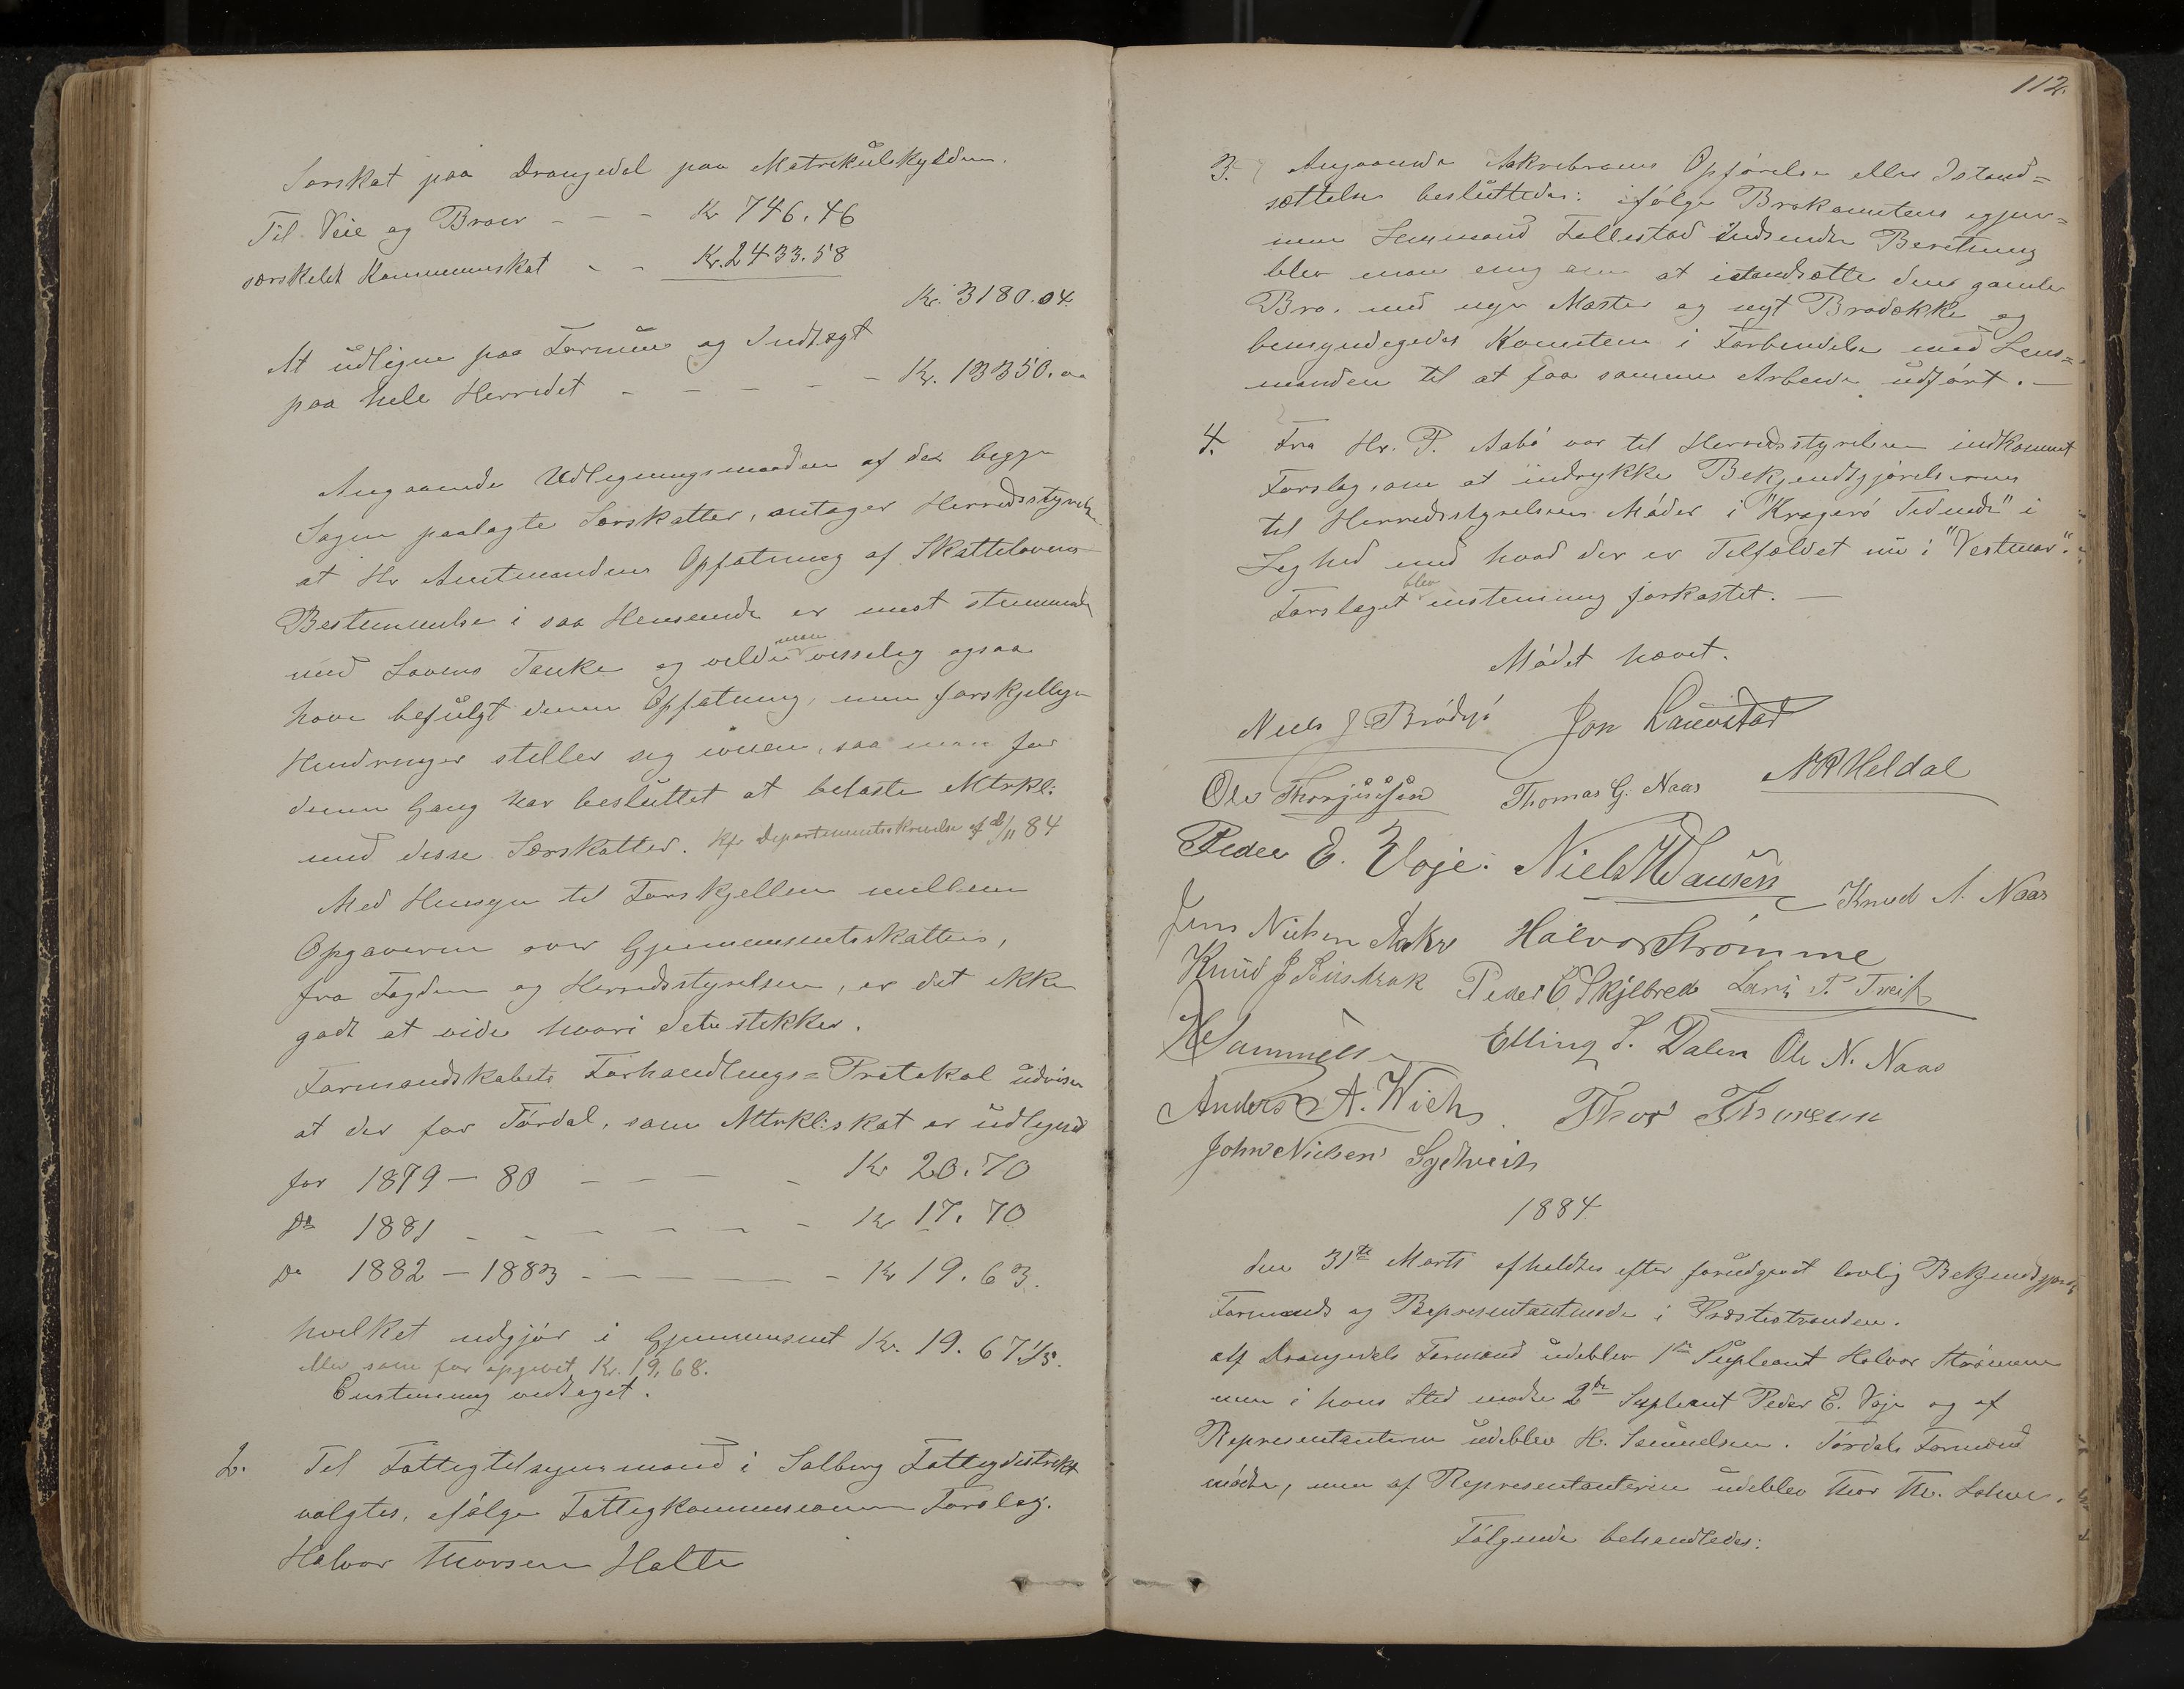 Særskat paa Drangedal paa Matrikulskylden.
Til Veie og Broer - - - Kr 746.46
særskildt Kommuneskat - - Kr. 2433.58
Kr. 3180.04.
At udligne paa Formue og Indtægt
paa hele Herredet - - - - Kr. 13350.00
Angaaende Udligningsmaaden af de begge
Sogne paalagte Særskatter, antager Herredsstyrelsen
at Hr Amtmandens Opfatning af Skattelovens
Bestemmelse i saa Henseende er mest stemmende
med Lovens Tanke og vilde man visselig ogsaa
have befulgt denne Opfatning, men forskjellige
Hindringer stiller sig imen, saa man for
denne Gang har besluttet at belaste Mtrkl:
med disse Særskatter. Kfr Departementsskrivelse af /11 84
Med Hensyn til Forskjellen mellem
Opgaverne over Gjennemsnitsskatten,
fra Fogden og Herredsstyrelsen, er det ikke
godt at vide hvori dette stikker.
Formandskabets Forhandlings=Protokol udviser
at der for Tørdal, som Mtrkl:skat er udlignet
for 1879 - 80 - - - - Kr 20.70
Do 1881 - - - - - Kr 17.70
Do 1882 - 1883 - - - - Kr 19.63.
hvilket udgjør i Gjennemsnit Kr. 19.67 1/3.
eller som før opgivet Kr. 19,68.
Enstemmig vedtaget.
2. Til Fattigtilsynsmand i Solberg Fattigdistrikt
valgtes, ifølge Fattigkommissionens Forslag.
Halvor Thorsen Holte
112.
3. Angaaende Aakrebroens Opførelse eller Istand=
sættelse besluttedes: ifølge Brokomiteens igjen=
nem Lensmand Tellestad indsendte Beretning
blev man enig om at istandsætte den gamle
Bro. med nye Master og nyt Brodække og
bemyndigedes Komiteen i Forbindelse med Lens=
manden til at faa samme Arbeide udført. -
4. Fra Hr. P. Aabø var til Herredsstyrelsen indkommet
Forslag, om at indrykke Bekjendtgjørelserne
til Herredsstyrelsens Møder i "Kragerø Tidende" i
Lighed med hvad der er Tilfældet nu i "Vestmar".
Forslaget blev enstemmig forkastet. -
Mødet hævet.
Niels J. Brødsjø Jon Lauvstad
Ole Thorjussen Thomas G. Naas N P Heldal
Peder E. Voje. Niels H Hansen Knud A. Naas
Jens Nielsen Aakre Halvor Strømme
Knud J Peder E Skjelbred Lars P. Tveit
H Samuelsen Elling S. Dalen Ole N. Naas
Anders A. Wich Thor Thorsen
John Nielsen Sydtveit
1884
den 31te Marts afholdtes efter forudgaaet lovlig Bekjendtgjørelse
Formands og Representantmøde i Præstestranden.
Af Drangedals Formænd udeblev 1ste Supleant Halvor Strømme
men i hans Sted mødte 2den Supleant Peder E. Voje og af
Representanterne udeblev H. Samuelsen. Tørdals Formænd
mødte, men af Representanterne udeblev Thor Th.
Følgende behandledes: